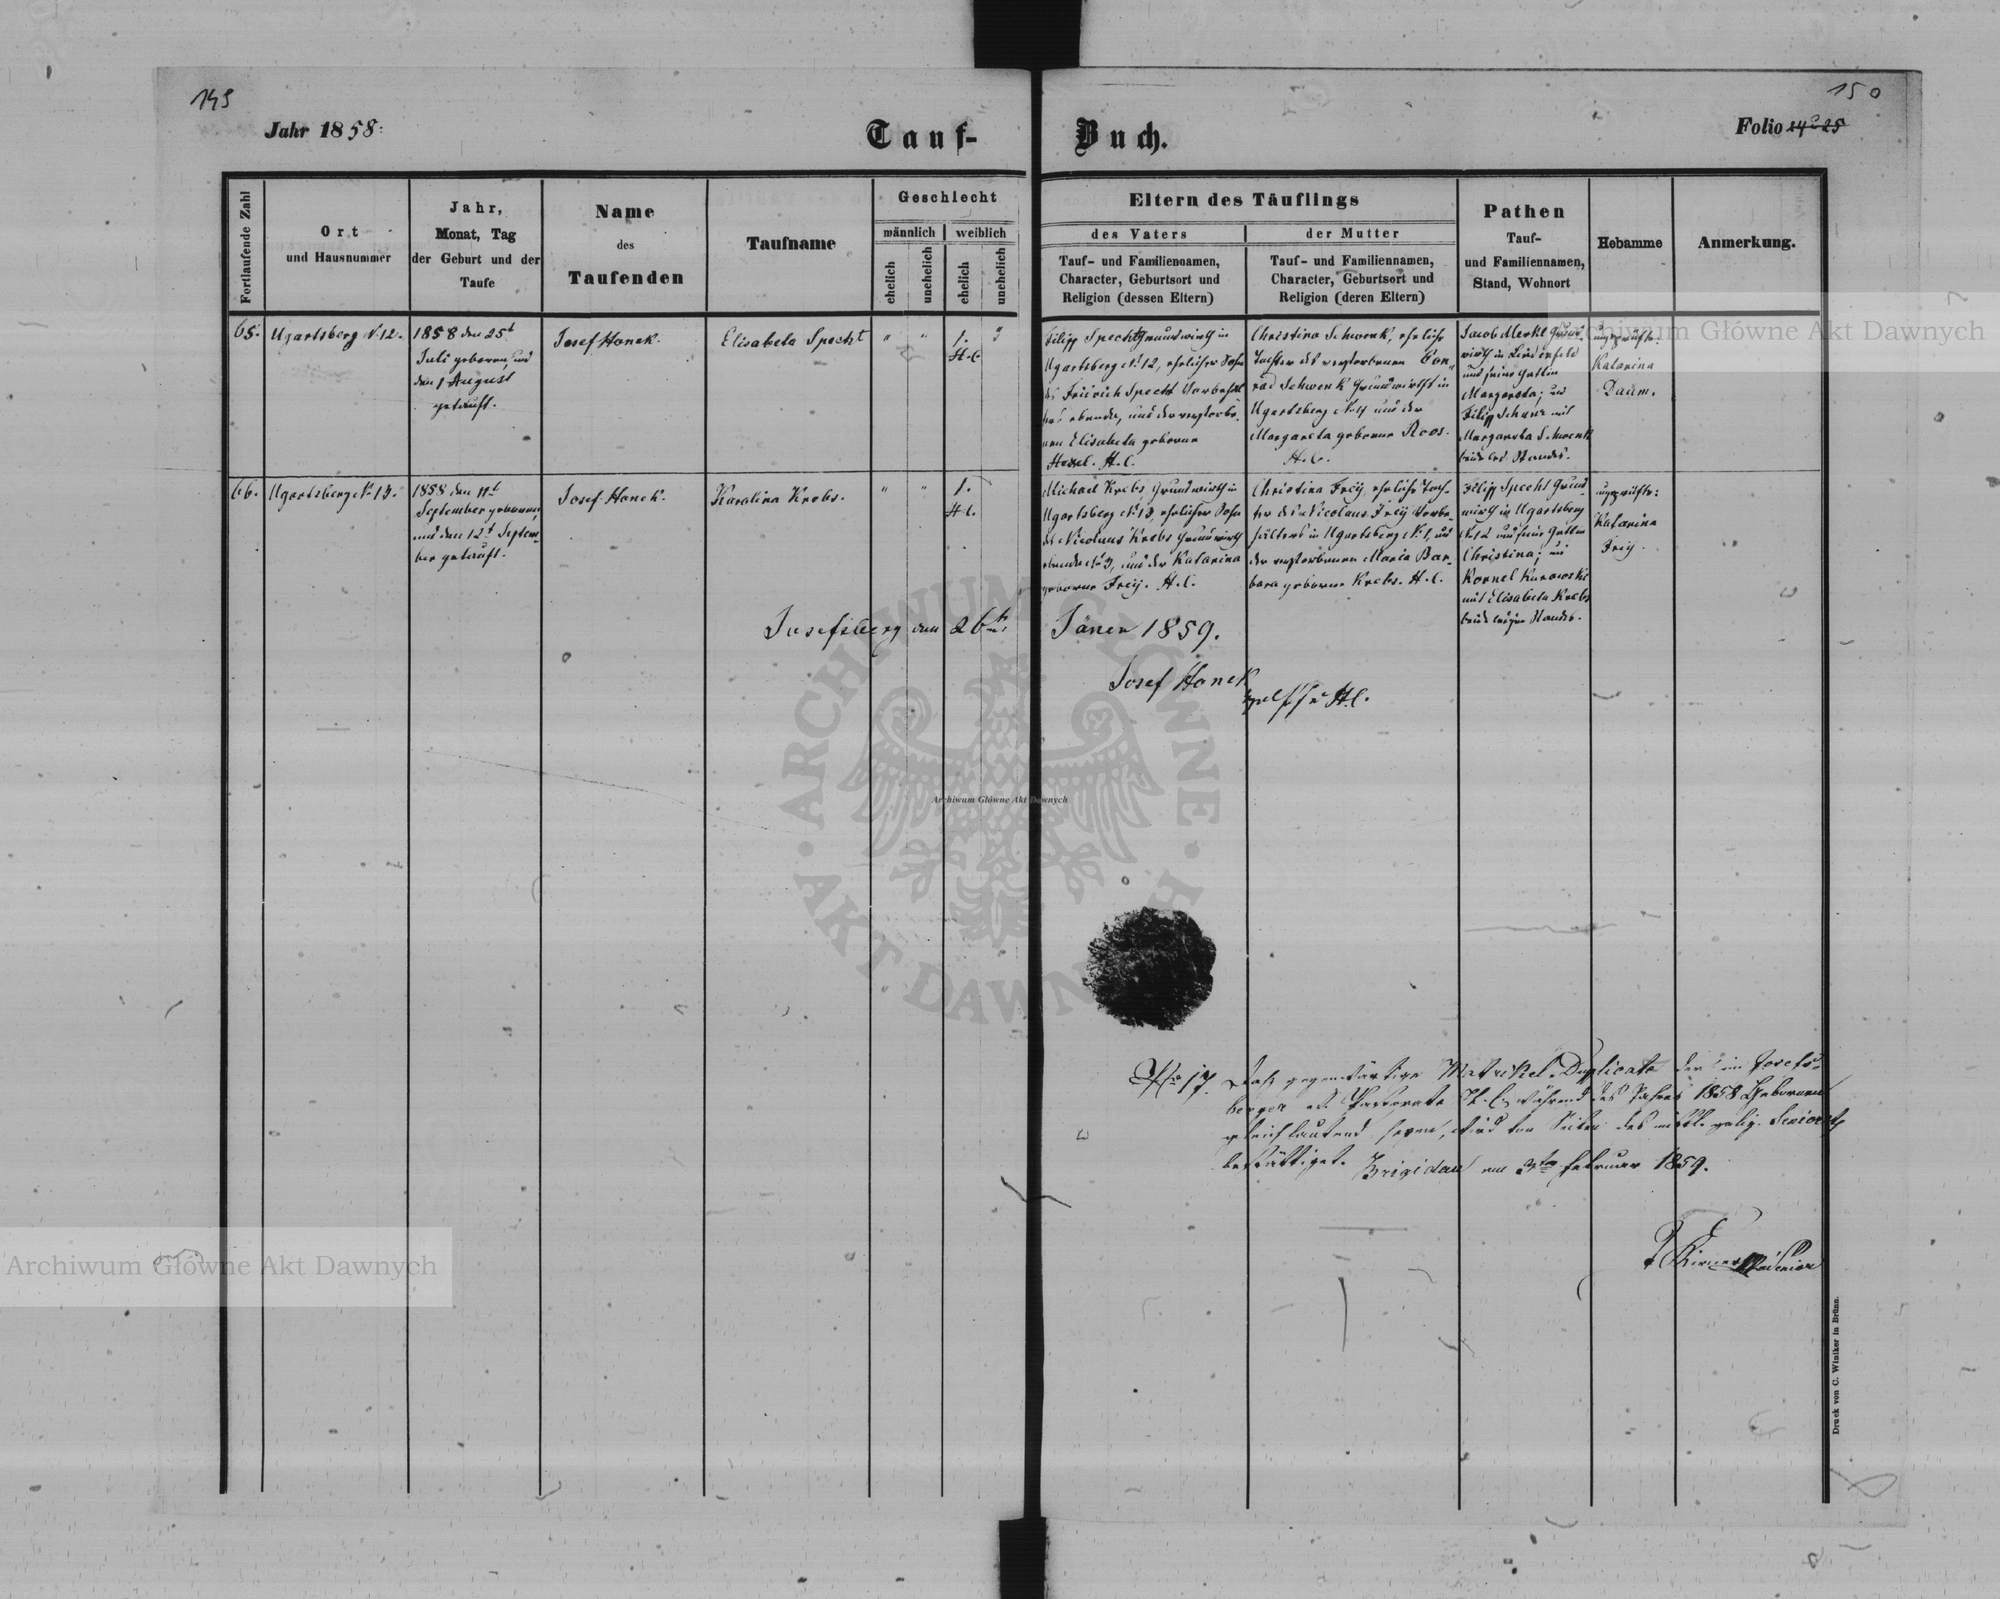 149
150
Jahr 1858.
Tauf-
Buch.
Folio
Fortlaufende Zahl
Ort
und Hausnummer
Jahr,
Monat, Tag
der Geburt und der
Taufe
Name
des
Taufenden
Taufname
Geschlecht
männlich
weiblich
ehelich
unehelich
ehelich
unehelich
Eltern des Täuflings
des Vaters
Tauf- und Familiennamen,
Character, Geburtsort und
Religion (dessen Eltern)
der Mutter
Tauf- und Familiennamen,
Character, Geburtsort und
Religion (deren Eltern)
Pathen
Tauf-
und Familiennamen,
Stand, Wohnort
Hebamme
Anmerkung.
65.
Ugartsberg N 12.
1858 den 25t
Juli geboren, und
den 1 August
getauft.
Josef Hanek.
Elisabeta Specht
" "
1.
H.C.
"
Filipp Specht Grundwirth in
Ugartsberg No 12, ehelicher Sohn
des Friedrich Specht
und der verstorbe-
nen Elisabeta geborne
Hessel. H.C.
Christina Schwenk, eheliche
Tochter des verstorbenen Con-
rad Schwenk Grundwirth in
Ugartsberg und der
Margareta geborne Roos.
H.C.
Jacob Merkl Grund-
wirth in Lindenfeld
und seine Gattin
Margareta; und
Filipp Schanz mit
Margareta Schwenk
beide led. Standes.
ungeprüfte:
Katarina
Daum.
66.
Ugartsberg N 13.
1858 den 11t
September geboren,
und den 12t Septem-
ber getauft.
Josef Hanek.
Karolina Krebs.
" "
1.
H.C.
Michael Krebs Grundwirth in
Ugartsberg No 13, ehelicher Sohn
des Nicolaus Krebs Grundwirth
und der Katarina
geborne Frey. H.C.
Christina Frey, eheliche Toch-
ter des Nicolaus Frey Vorbe-
hälters in Ugartsberg No 1, und
der verstorbenen Maria Bar-
bara geborne Krebs. H.C.
Filipp Specht Grund-
wirth in Ugartsberg
No 12 und seine Gattin
Christina; und
Kornel Kurowski
mit Elisabeta Krebs
beide ledigen Standes.
ungeprüfte:
Katarina
Frey.
Josefsberg den 26t Jäner 1859.
Josef Hanek
H.C.
No 17. Daß gegenwärtige Matrikel-Duplicate der im Josefs-
berger ev. Pastorate H.C. während des Jahres 1858 Geborenen
gleichlautend seyen, wird von Seiten des Seniorats
bestättiget. Brigidau am Februar 1859.
Senior
Druck von C. Winiker in Brünn.
Archiwum Główne Akt Dawnych
Archiwum Główne Akt Dawnych
Archiwum Główne Akt Dawnych
ARCHIWUM GŁÓWNE AKT DAWNYCH